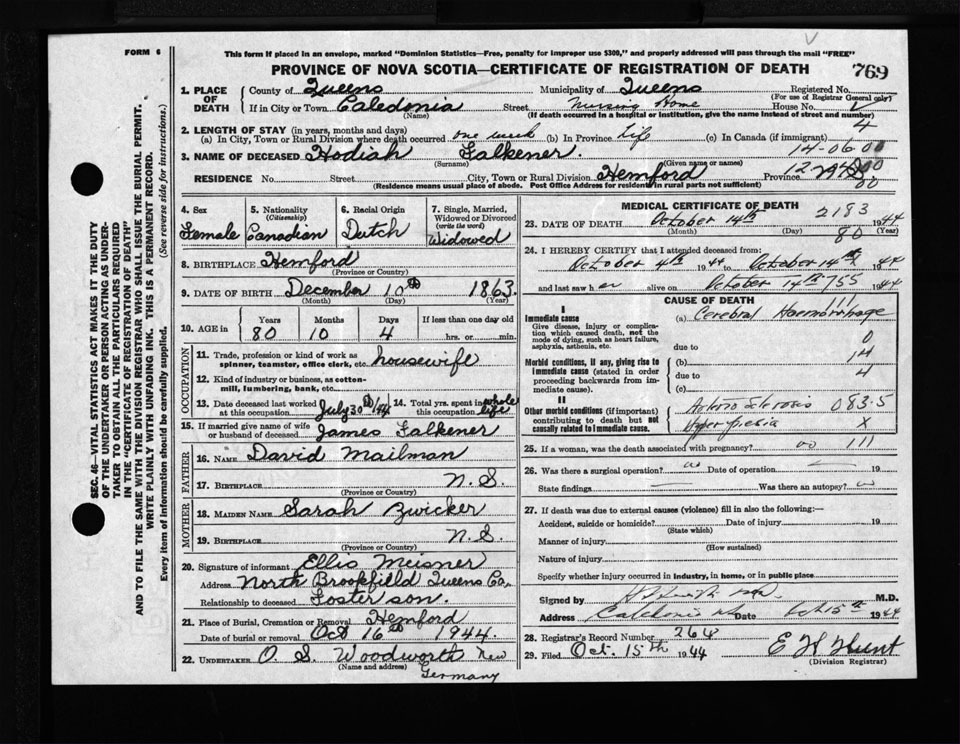 FORM 6
This form if placed in an envelope, marked "Dominion Statistics—Free, penalty for improper use $300," and properly addressed will pass through the mail "FREE"
PROVINCE OF NOVA SCOTIA—CERTIFICATE OF REGISTRATION OF DEATH
769
1. PLACE OF DEATH
County of Queens Municipality of Queens Registered No.
(For use of Registrar General only)
If in City or Town Caledonia Street Nursing Home House No.
(Name) (If death occurred in a hospital or institution, give the name instead of street and number)
2. LENGTH OF STAY (in years, months and days)
4
(a) In City, Town or Rural Division where death occurred one week (b) In Province Life (c) In Canada (if immigrant)
14-06-00
3. NAME OF DECEASED Hodiah Falkener.
(Surname) (Given name or names)
RESIDENCE No. Street City, Town or Rural Division Hemford Province N.S.
(Residence means usual place of abode. Post Office Address for residents in rural parts not sufficient)
4. Sex Female
5. Nationality (Citizenship) Canadian
6. Racial Origin Dutch
7. Single, Married, Widowed or Divorced (write the word) Widowed
8. BIRTHPLACE Hemford
(Province or Country)
9. DATE OF BIRTH December 10th 1863
(Month) (Day) (Year)
10. AGE in Years Months Days If less than one day old
80 10 4 hrs. or min.
OCCUPATION
11. Trade, profession or kind of work as spinner, teamster, office clerk, etc. housewife
12. Kind of industry or business, as cotton-mill, lumbering, bank, etc.
13. Date deceased last worked at this occupation July 30th/44 14. Total yrs. spent in this occupation whole life
15. If married give name of wife or husband of deceased James Falkener
FATHER
16. NAME David Mailman
17. BIRTHPLACE N.S.
(Province or Country)
MOTHER
18. MAIDEN NAME Sarah Zwicker
19. BIRTHPLACE N.S.
(Province or Country)
20. Signature of informant Ellis Meisner
Address North Brookfield Queens Co.
Relationship to deceased Foster son.
21. Place of Burial, Cremation or Removal Hemford
Date of burial or removal Oct 16th 1944.
22. UNDERTAKER O. S. Woodworth New Germany
(Name and address)
MEDICAL CERTIFICATE OF DEATH
2183
23. DATE OF DEATH October 14th 1944
(Month) (Day) (Year)
80
24. I HEREBY CERTIFY that I attended deceased from:
October 4th 1944 to October 14th 1944
and last saw her alive on October 14th 1944
CAUSE OF DEATH
I
Immediate cause
Give disease, injury or complication which caused death, not the mode of dying, such as heart failure, asphyxia, asthenia, etc.
(a) Cerebral Haemorrhage
due to
0
14
4
Morbid conditions, if any, giving rise to immediate cause (stated in order proceeding backwards from immediate cause).
(b)
due to
(c)
II
Other morbid conditions (if important) contributing to death but not causally related to immediate cause.
Arterio Sclerosis 083.5
Hyperpiesia X
25. If a woman, was the death associated with pregnancy? no 111
26. Was there a surgical operation? no Date of operation 19
State findings Was there an autopsy? no
27. If death was due to external causes (violence) fill in also the following:—
Accident, suicide or homicide? Date of injury 19
(State which)
Manner of injury
(How sustained)
Nature of injury
Specify whether injury occurred in industry, in home, or in public place
Signed by M.D.
Address Caledonia Date Oct 15th 1944
28. Registrar's Record Number 264
29. Filed Oct. 15th 1944 E H Hunt
(Division Registrar)
SEC. 46—VITAL STATISTICS ACT MAKES IT THE DUTY
OF THE UNDERTAKER OR PERSON ACTING AS UNDERTAKER TO OBTAIN ALL THE PARTICULARS REQUIRED
IN THE "CERTIFICATE OF REGISTRATION OF DEATH"
AND TO FILE THE SAME WITH THE DIVISION REGISTRAR WHO SHALL ISSUE THE BURIAL PERMIT.
WRITE PLAINLY WITH UNFADING INK. THIS IS A PERMANENT RECORD.
Every item of information should be carefully supplied. (See reverse side for instructions.)